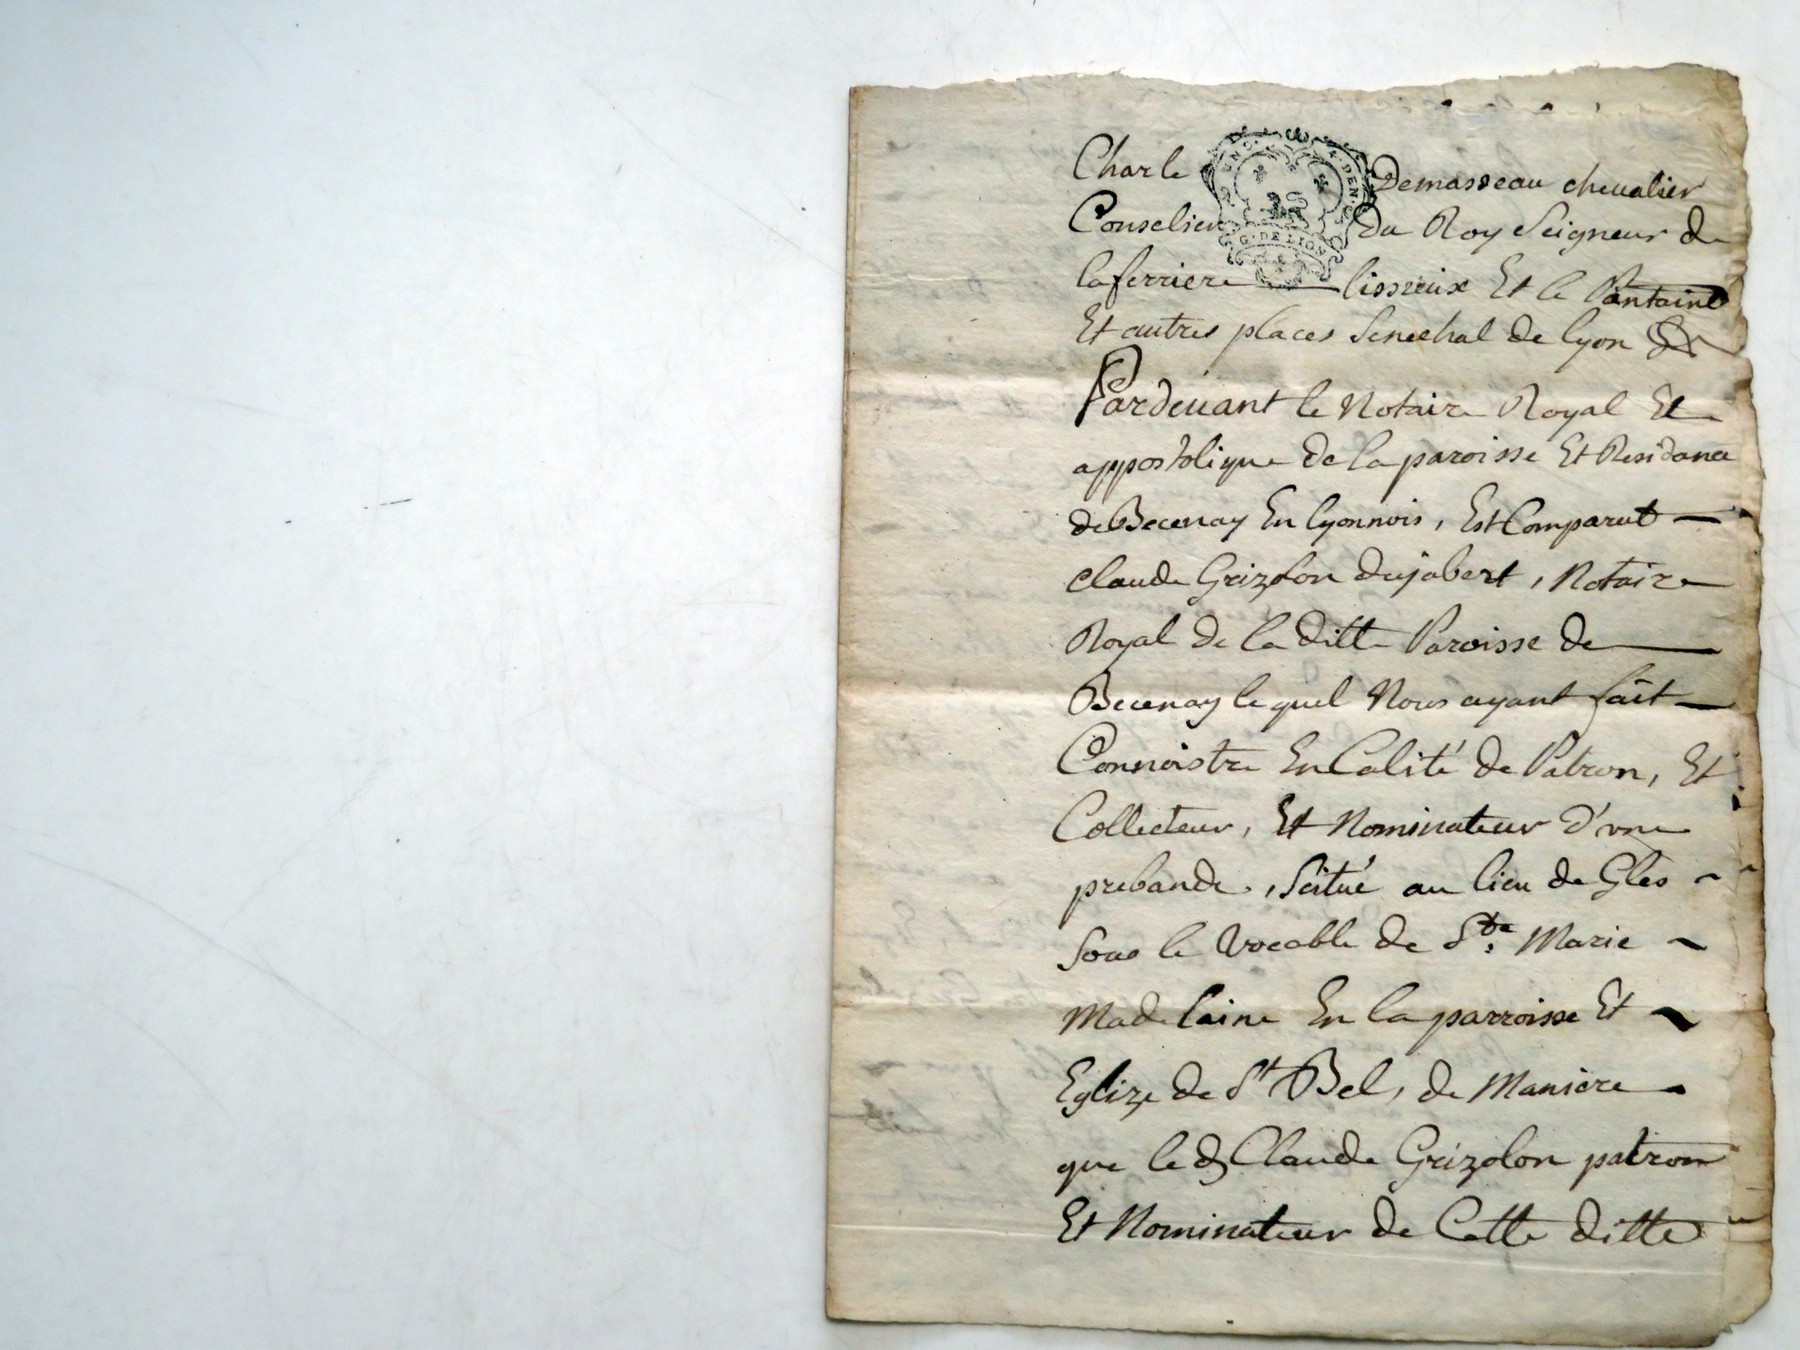 Charle Demasseau chevalier
Conselier du Roy Seigneur de
laferriere lissieux Et le Pantaine
Et autres places Senechal de lyon
G. DE LION
Pardevant le Notaire Royal Et
appostolique de la paroisse Et Residance
de Becenay En lyonnois, Est Comparut
Claude Grizolon dujabert, Notaire
Royal de la ditte Paroisse de
Becenay le quel Nous ayant fait
Connoistre En Calité de Patron, Et
Collecteur, Et Nominateur d'une
prebande, Scitué au lieu de Gles
Sous le Vocable de Ste. Marie
Madelaine En la parroisse Et
Eglize de St Bel, de Maniere
que le d Claude Grizolon patron
Et Nominateur de Cette ditte